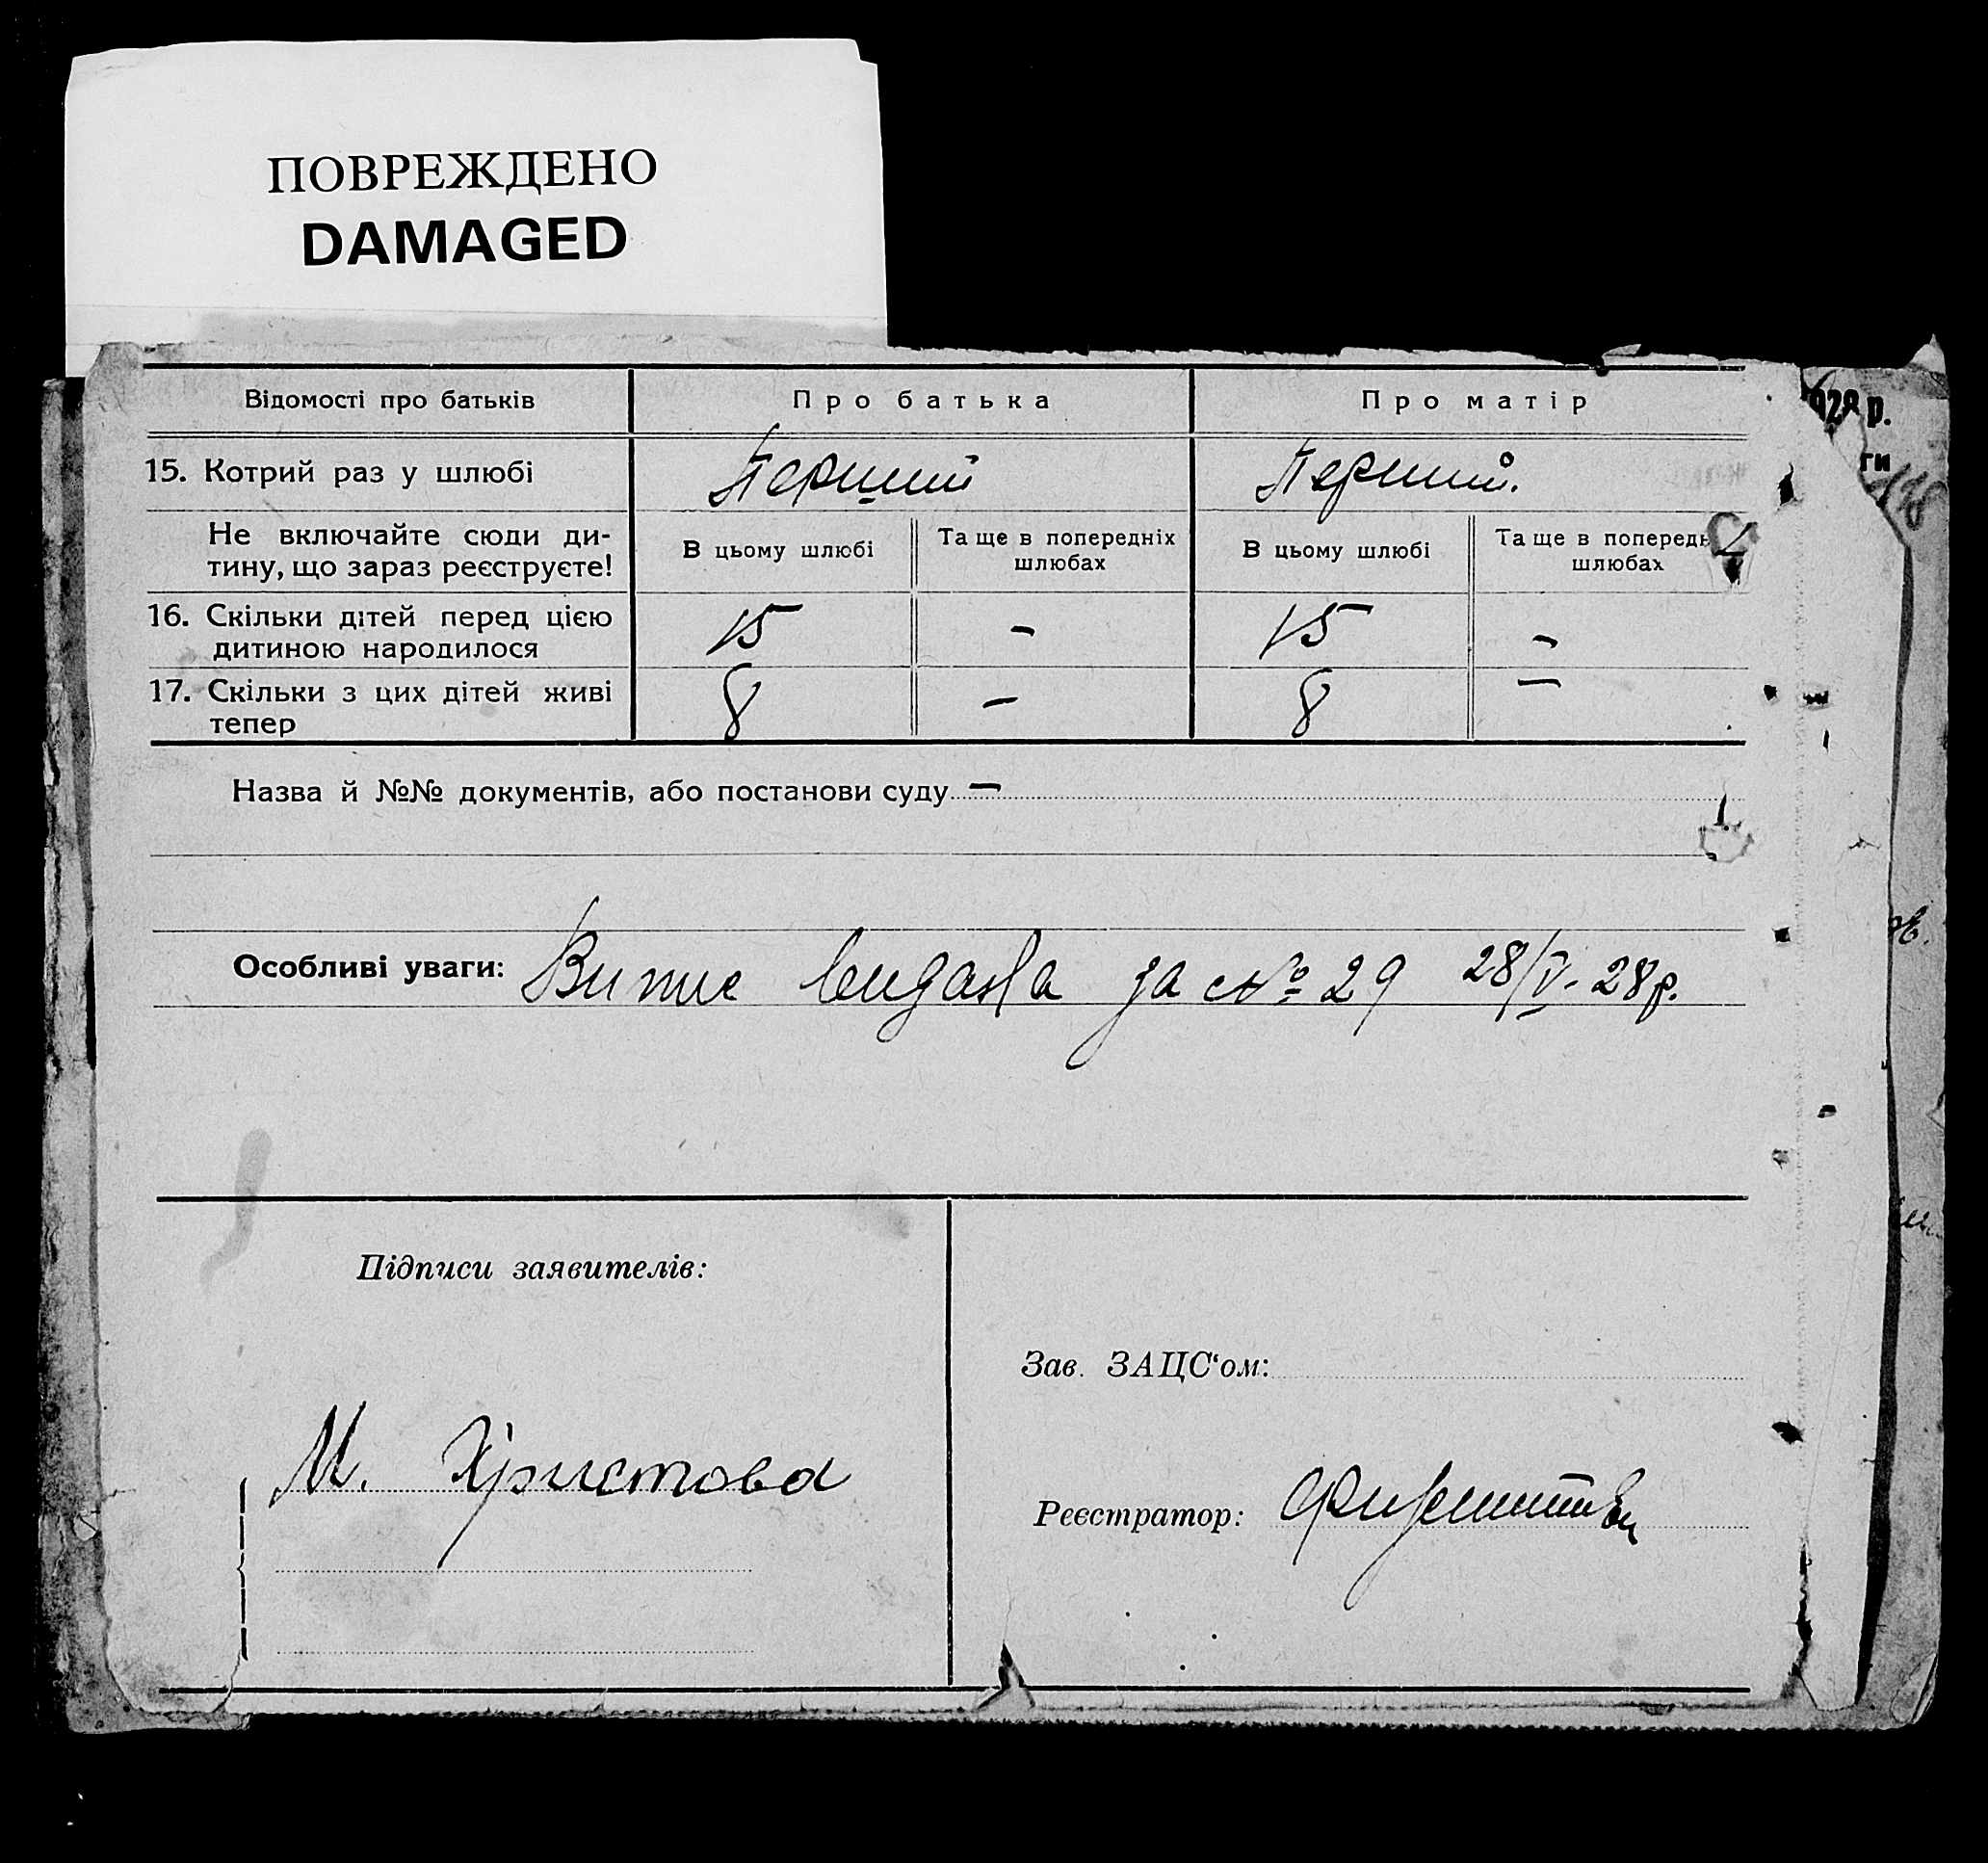 ПОВРЕЖДЕНО
DAMAGED
Відомості про батьків Про батька Про матір
928 р.
15. Котрий раз у шлюбі Перший Перший.
ги
Не включайте сюди ди- В цьому шлюбі Та ще в попередніх В цьому шлюбі Та ще в поперед
тину, що зараз реєструєте! шлюбах шлюбах
16. Скільки дітей перед цією 15 - 15 -
дитиною народилося
17. Скільки з цих дітей живі 8 - 8 -
тепер
Назва й №№ документів, або постанови суду —
Особливі уваги: Випис видана за № 29 28/V-28р.
Підписи заявителів:
Зав. ЗАЦС‘ом:
М. Христова
Реєстратор: